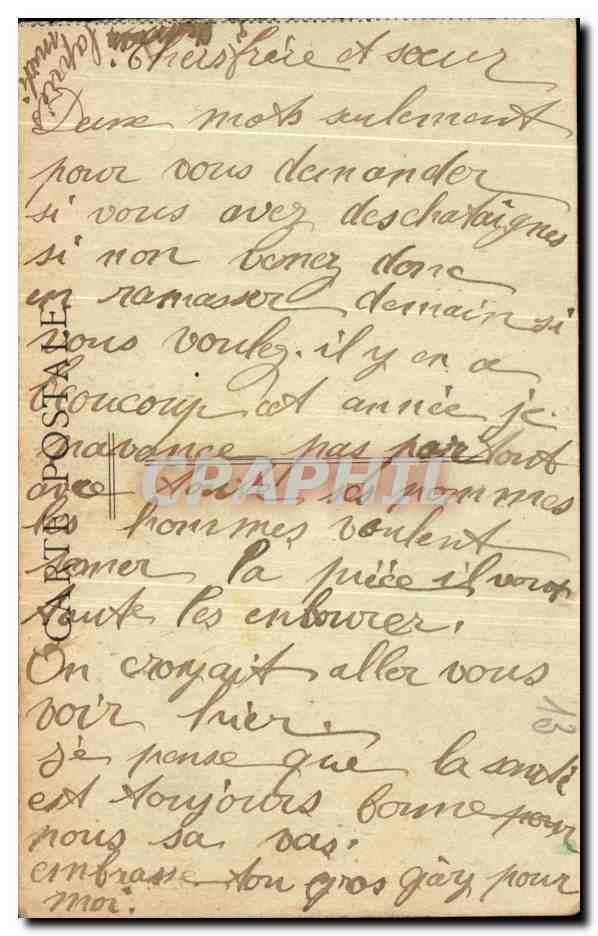 Chers frère et sœur
Deux mots seulement
pour vous demander
si vous avez des chataignes
si non venez donc
en ramasser demain si
vous voulez. il y en a
beaucoup cet année je
n'avance pas partout
avec toutes les pommes
les hommes veulent
semer la pièce il
toute les enlourer.
On croyait aller vous
voir hier.
je pense que la santé
est toujours bonne pour
nous sa vas.
embrasse ton gros gàry pour
moi.
CARTE POSTALE
CPAPHIL
13